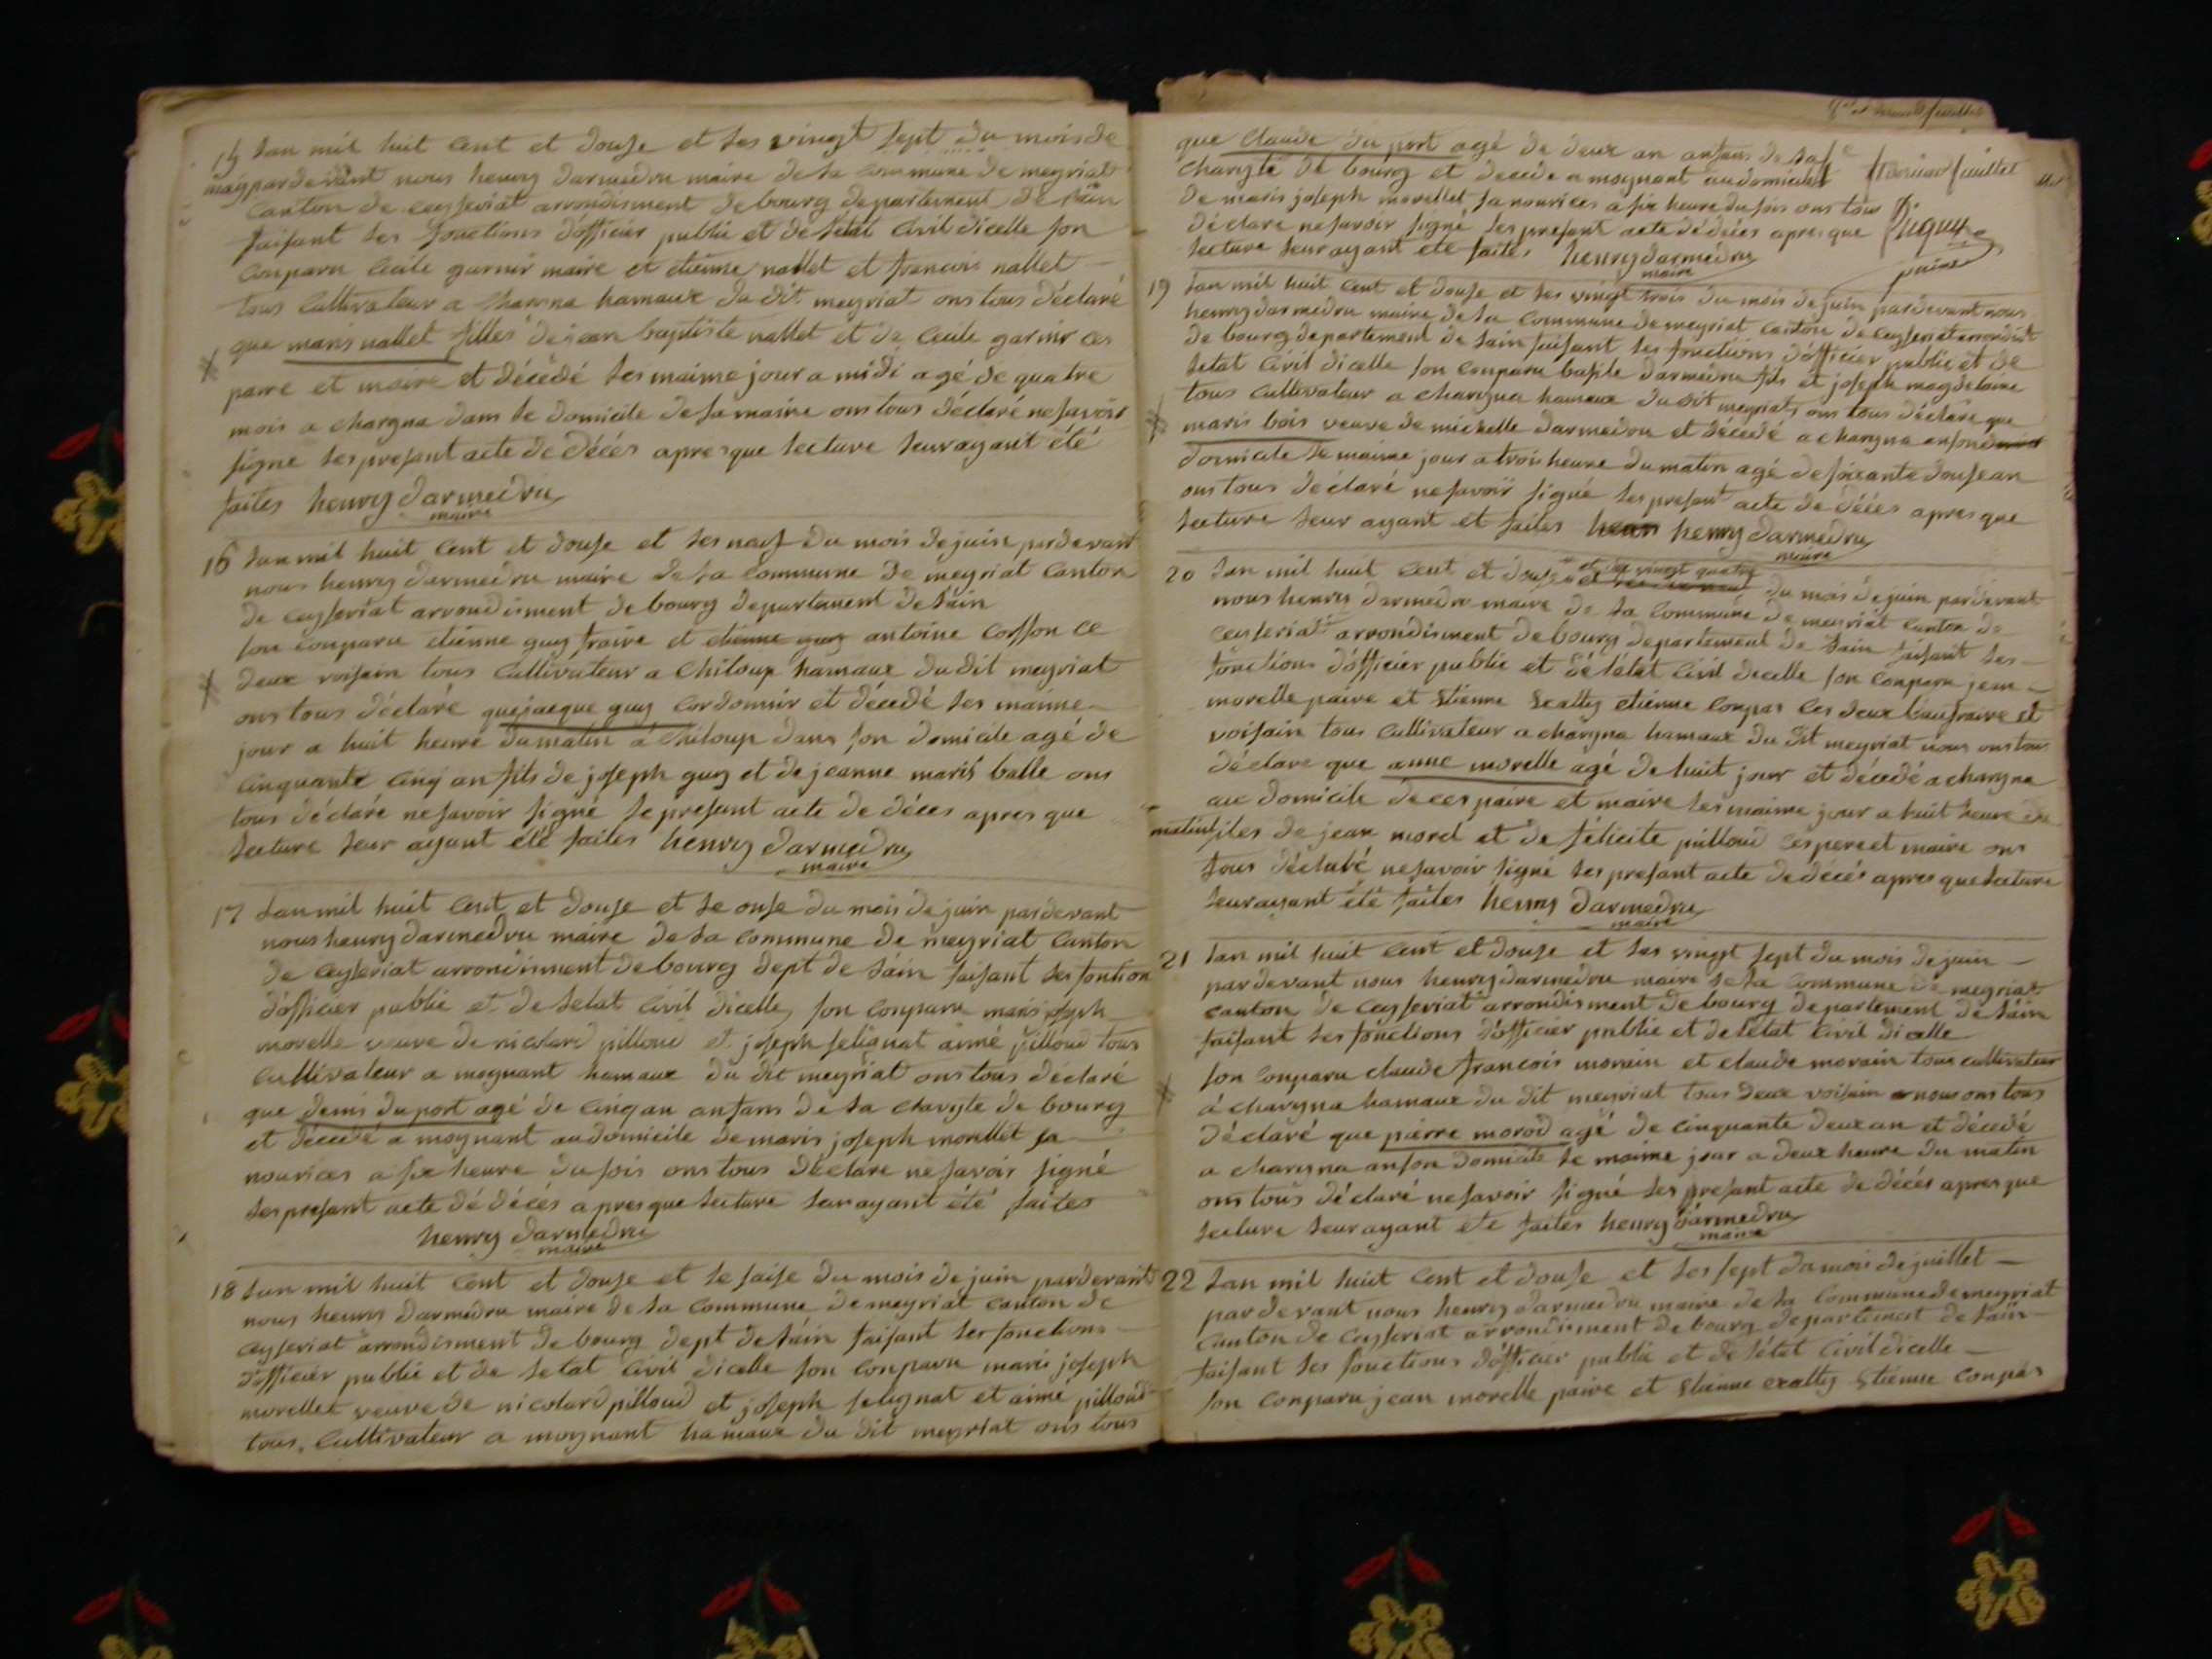 15 Lan mil huit Cent et douse et les vingt sept du mois de
may pardevant nous henry darmedru maire de la Commune de meyriat
Canton de ceyseriat arrondisment de bourg departement de lain
faisant les fonctions dofficier public et de letat Civil dicelle son
Conparu Cecile garnir maire et etienne nallet et francois nallet
tous Cultivateur a Charna hamaux du dit meyriat ons tous déclaré
que maris nallet filles de jean baptiste nallet et de Cecile garnir ces
paire et maire et décédé les maime jour a midi agé de quatre
mois a chargna dans le domicile de sa maire ons tous déclaré ne savoir
signe les present acte de Décés apres que lecture leur ayant été
faites henry darmedru
maire
16 Lan mil huit Cent et douse et les neuf du mois de juin pardevant
nous henry darmedru maire de la Commune de meyriat Canton
de ceyseriat arrondisment de bourg departement de lain
son conparu etienne guy fraire et etienne guy antoine Corsson ce
deux voisain tous Cultivateur a Chiloup hamaux du dit meyriat
ons tous déclaré que jacque guy Cordonnir et décédé les maime
jour a huit heure du matin a Chiloup dans son domicile agé de
Cinquante Cinq an fils de joseph guy et de jeanne maris balle ons
tous déclaré ne savoir signé le present acte de déces apres que
lecture leur ayant été faites henry darmedru
maire
17 Lan mil huit Cent et douse et le onse du mois de juin pardevant
nous henry darmedru maire de la Commune de meyriat Canton
de Ceyseriat arrondisment de bourg dept de láin faisant les fontion
dofficier public et de letat Civil dicelle son Conparu maris joseph
morelle veuve de nicolard pilloud et joseph selignat aimé pilloud tous
Cultivateur a moynant hamaux du dit meyriat ons tous déclaré
que denis du port agé de Cinq an anfans de la charyte de bourg
et décédé a moynant au domicile de maris joseph morellet sa
nourices a six heure du sois ons tous déclare ne savoir signé
les present acte dé décés apres que lecture leur ayant été faites
henry darmedru
maire
18 Lan mil huit Cent et douse et le saise du mois de juin pardevant
nous henry darmedru maire de la Commune de meyriat canton de
ceyseriat arrondisment de bourg dept de láin faisant les fonctions
dofficier public et de letat Civil dicelle son Conparu maris joseph
morellet veuve de nicolard pilloud et joseph selignat et aimé pilloud
tous Cultivateur a moynant hamaux du dit meyriat ons tous
que Claude du port agé de deux an anfans de la
charyté de bourg et décédé a moynant au domicile
de maris joseph morellet sa nourices a six heure du sois ons tous
déclare ne savoir signé les present acte dé décés apres que
lecture leur ayant été faites henry darmedru
maire
19 Lan mil huit Cent et douse et les vingt trois du mois de juin pardevant nous
henry darmedru maire de la Commune de meyriat canton de Ceyseriat arrondist
de bourg departement de lain faisant les fonctions dofficier public et de
letat Civil dicelle son Conparu basile darmedru fils et joseph magdelaine
tous Cultivateur a chargna hamaux du dit meyriat, ons tous déclaré que
maris bois veuve de michelle darmedru et décédé a chargna anson
domicile le maime jour a trois heure du matin agé de soixante douse an
ons tous déclaré ne savoir signé les present acte de décés apres que
lecture leur ayant et faites henry darmedru
maire
20 Lan mil huit Cent et douse et les vingt quatre du mois de juin pardevant
nous henry darmedru maire de la Commune de meyriat canton de
ceyseriat arrondisment de bourg departement de lain faisant les
fonctions dofficier public et de létat Civil dicelle son Conparu jean
morelle paire et Etienne exalty etienne Conpas ces deux baufraire et
voisain tous Cultivateur a chargna hamaux du dit meyriat nous ons tous
déclare que anne morelle agé de huit jour et décédé a chargna
au domicile de ces paire et maire les maime jour a huit heure du
matin files de jean morel et de félicite pilloud ces pere et maire ons
tous déclaré ne savoir signé les present acte de décés apres que lecture
leur ayant été faites henry darmedru
maire
21 Lan mil huit Cent et douse et les vingt sept du mois de juin
pardevant nous henry darmedru maire de la Commune de meyriat
canton de Ceyseriat arrondisment de bourg departement de láin
faisant les fonctions dofficier public et de létat Civil dicelle
son Conparu claude francois morain et claude morain tous cultivateur
á chargna hamaux du dit meyriat tous deux voisain nous ons tous
déclaré que pierre morod agé de Cinquante deux an et décedé
a chargna anson domicile le maime jour a deux heure du matin
ons tous déclaré ne savoir signé les present acte de décés apres que
lecture leur ayant ete faites henry darmedru
maire
22 Lan mil huit Cent et douse et les sept du mois de juillet
pardevant nous henry darmedru maire de la Commune de meyriat
Canton de Ceyseriat arrondisment de bourg departement de lain
faisant les fonctions dofficier public et de létat Civil dicelle
son Conparu jean morelle paire et Etienne exalty Etienne Conpas